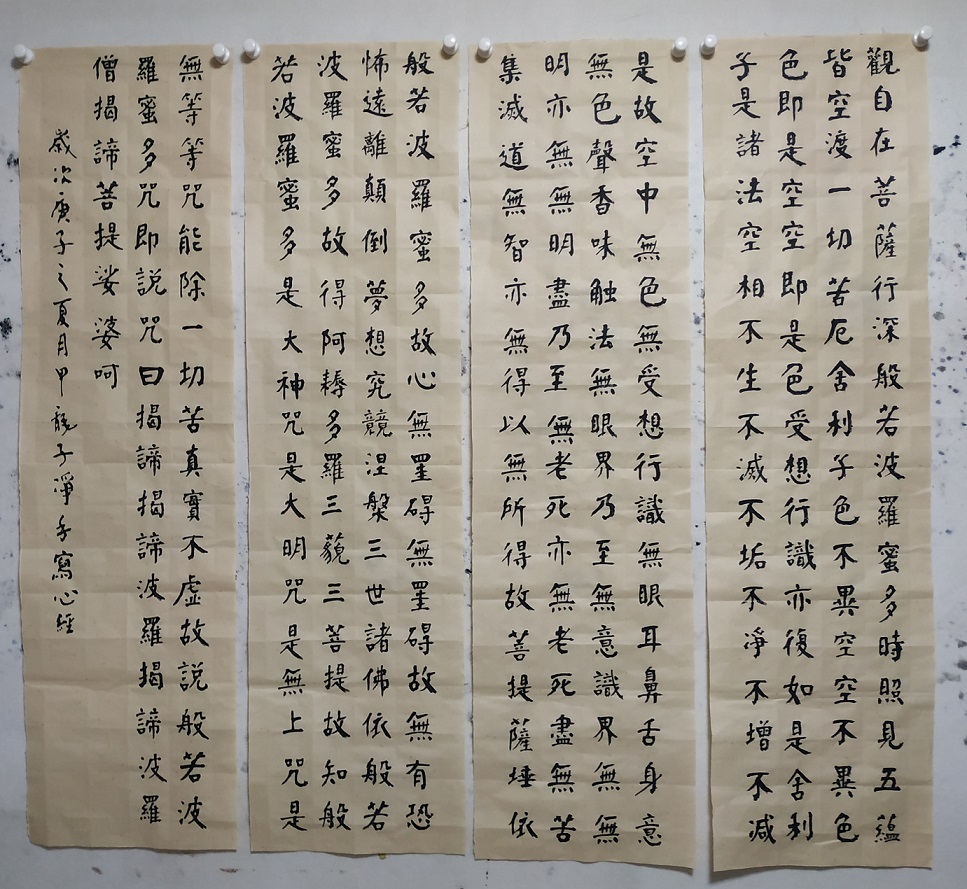 觀自在菩薩行深般若波羅蜜多時照見五蘊
皆空渡一切苦厄舍利子色不異空空不異色
色即是空空即是色受想行識亦復如是舍利
子是諸法空相不生不滅不垢不淨不增不減
是故空中無色無受想行識無眼耳鼻舌身意
無色聲香味触法無眼界乃至無意識界無無
明亦無無明盡乃至無老死亦無老死盡無苦
集滅道無智亦無得以無所得故菩提薩埵依
般若波羅蜜多故心無罣碍無罣碍故無有恐
怖遠離顛倒夢想究競涅槃三世諸佛依般若
波羅蜜多故得阿耨多羅三藐三菩提故知般
若波羅蜜多是大神咒是大明咒是無上咒是
無等等咒能除一切苦真實不虛故説般若波
羅蜜多咒即説咒曰揭諦揭諦波羅揭諦波羅
僧揭諦菩提娑婆呵
歲次庚子之夏月甲龍子淨手寫心經